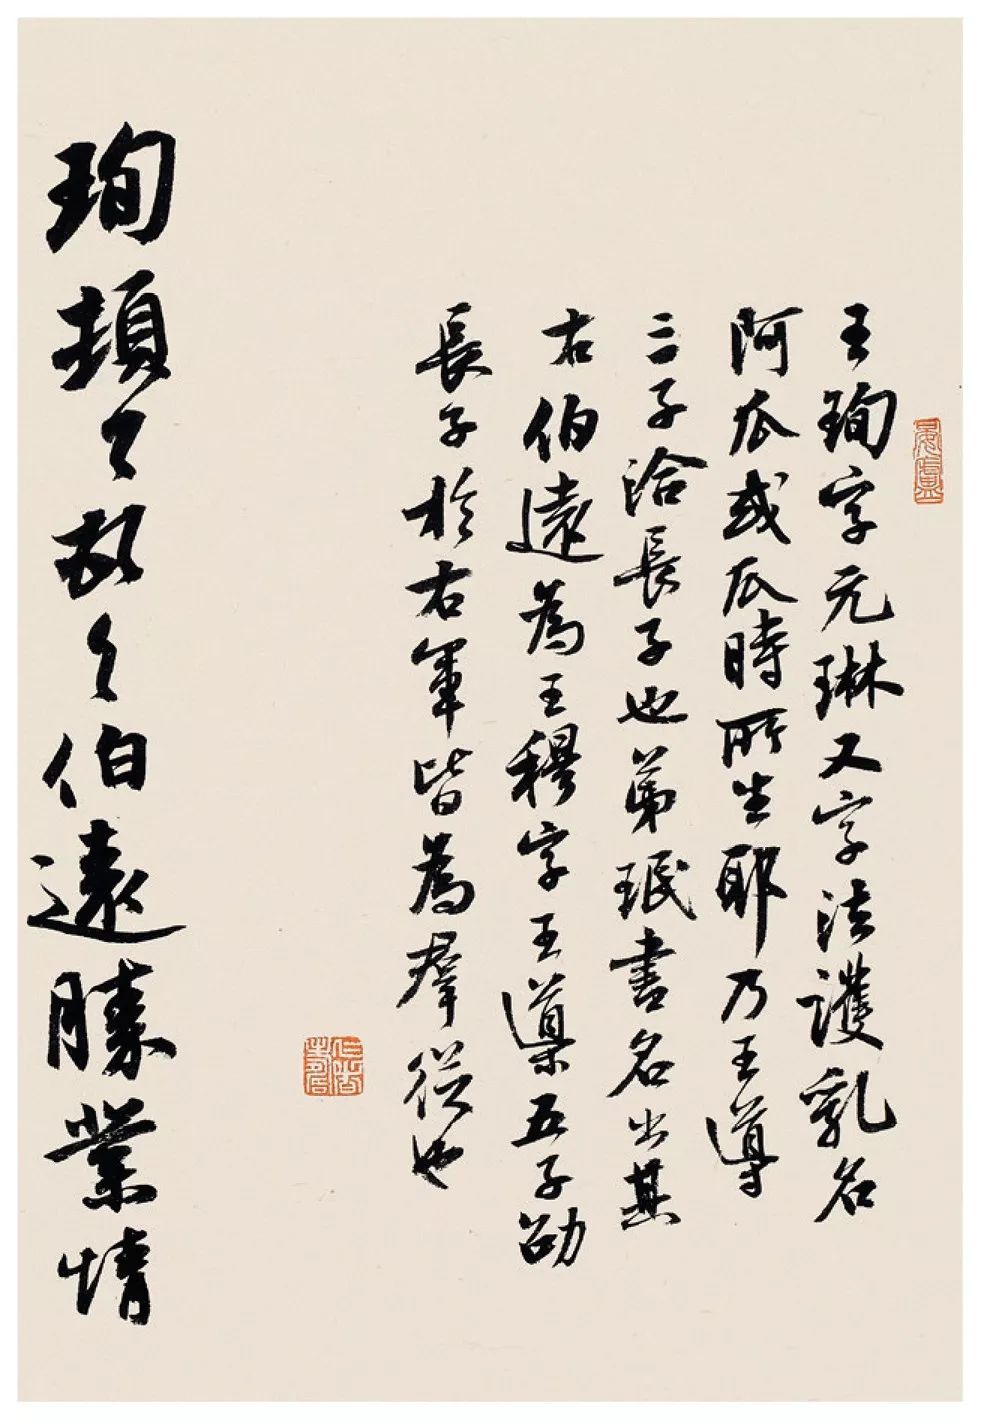 王珣字元琳又字法護乳名
阿瓜或瓜時所生耶乃王導
三子洽長子也弟珉書名出其
右伯遠為王穆字王導五子劭
長子於右軍皆為羣從也
珣頓首頓首伯遠勝業情